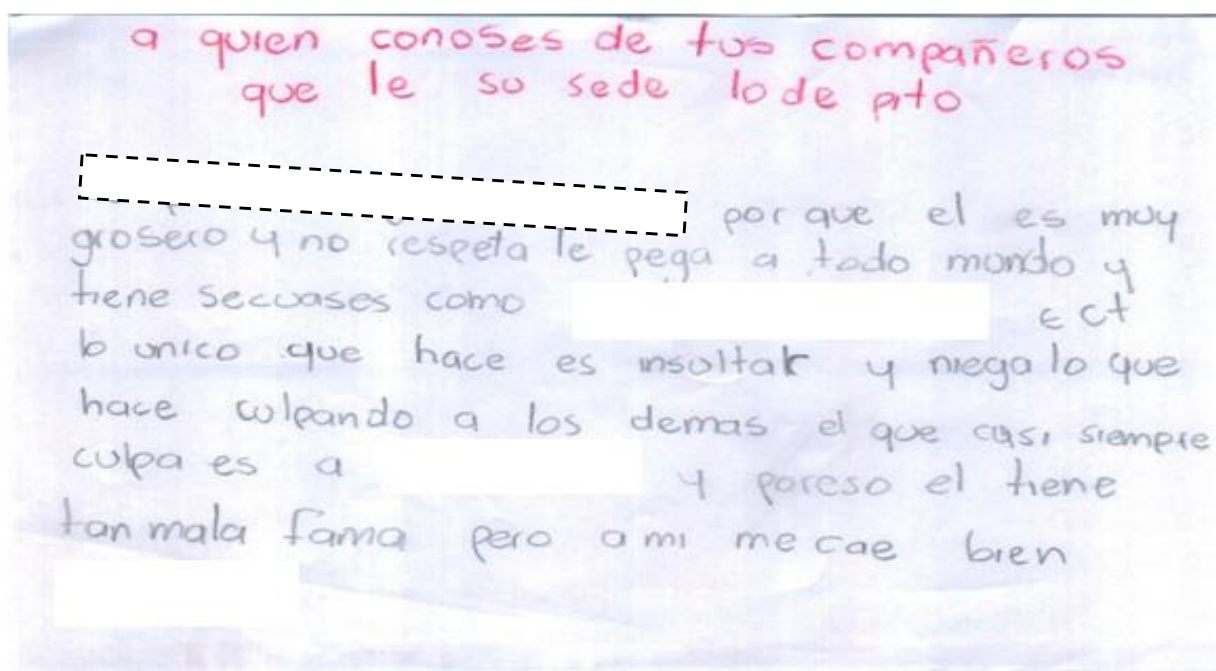 a quien conoses de tus compañeros
que le su sede lo de pito
por que el es muy
grosero y no respeta le pega a todo mundo y
tiene secuases como ect
lo unico que hace es insultar y niega lo que
hace culpando a los demas el que casi siempre
culpa es a y poreso el tiene
tan mala fama pero a mi me cae bien